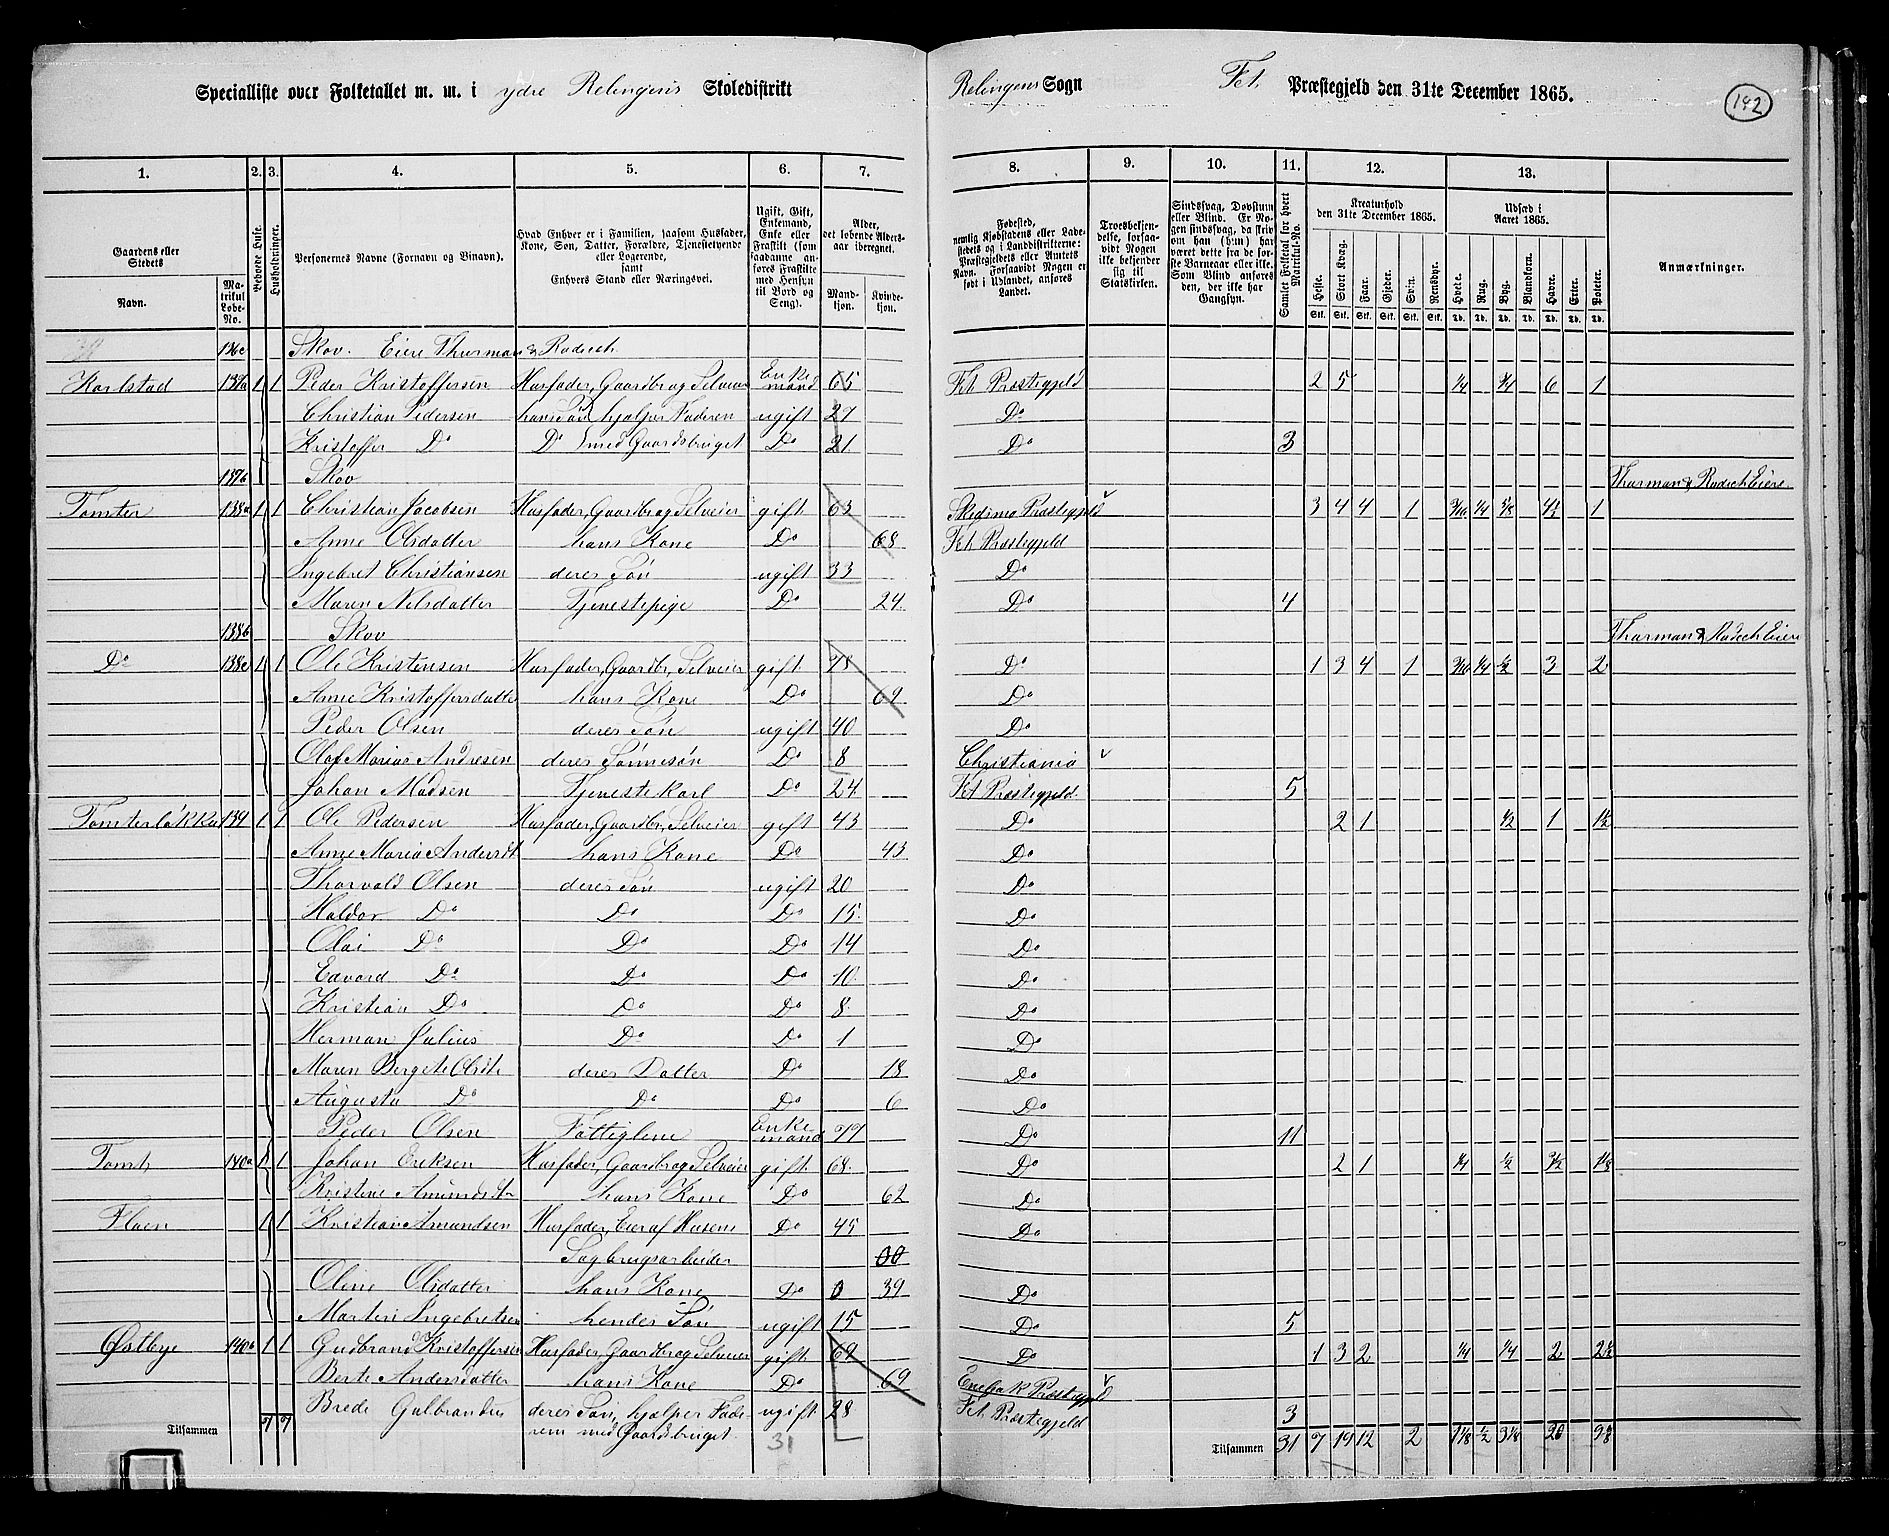 Specialliste over Folketallet m. m. i ydre Relingens Skoledistrikt Relingens Sogn Fet Præstegjeld den 31te December 1865. 142
1. 2. 3. 4. 5. 6. 7. 8. 9. 10. 11. 12. 13.
Gaardens eller Stedets Navn. Matrikul Løbe-No. Beboede Huse. Husholdninger. Personernes Navne (Fornavn og Binavn). Hvad Enhver er i Familien, saasom Husfader, Kone, Søn, Datter, Forældre, Tjenestetyende eller Logerende, samt Enhvers Stand eller Næringsvei. Ugift, Gift, Enkemand, Enke eller Fraskilt (som saadanne anføres Fraskilte med Hensyn til Bord og Seng). Alder, det løbende Aldersaar iberegnet. Mandkjøn. Kvindekjøn.
Fødested, nemlig Kjøbstadens eller Ladestedets og i Landdistrikterne: Præstegjeldets eller Amtets Navn. Forsaavidt Nogen er født i Udlandet, anføres Landet. Troesbekjendelse, forsaavidt Nogen ikke bekjender sig til Statskirken. Sindssvag, Døvstum eller Blind. Er Nogen sindssvag, da skriv om han (hun) har været dette fra de første Barneaar eller ikke. Som Blind anføres den, der ikke har Gangsyn. Samlet Folketal for hvert Matrikul-No. Kreaturhold den 31te December 1865. Heste. Stort Kvæg. Faar. Gjeder. Sviin. Rensdyr. Udsæd i Aaret 1865. Hvede. Rug. Byg. Blandkorn. Havre. Erter. Poteter. Anmærkninger.
Stk. Stk. Stk. Stk. Stk. Stk. Td. Td. Td. Td. Td. Td. Td.
136c Skov. Eiere Thurman & Radich
Karlstad 137a 1 1 Peder Kristoffersen Husfader, Gaardbrug Selveier Enkemand 65 Fet Præstegjeld 2 5 1/4 3/4 6 1
Christian Pedersen hans Søn hjælper Faderen ugift 27 Do
Kristoffer Do Do med Gaardsbruget Do 21 Do 3
137b Skov Thurman & Radich Eiere
Tomter 138a 1 1 Christian Jacobsen Husfader, Gaardbrug Selveier gift 63 Skedsmo Præstegjeld 3 4 4 1 3/16 1/4 5/8 4 1/2 1
Anne Olsdatter hans Kone Do 68 Fet Præstegjeld
Ingebret Christiansen deres Søn ugift 33 Do
Maren Nilsdatter Tjenestepige Do 24 Do 4
138b Skov Thurman & Radich Eiere
Do 138c 1 1 Ole Kristensen Husfader, Gaardbr, Selveier gift 78 Do 1 3 4 1 3/16 1/4 1/2 3 2
Anne Kristoffersdatter hans Kone Do 69 Do
Peder Olsen deres Søn ugift 40 Do
Olaf Marius Andresen deres Sønnesøn Do 8 Christiania
Johan Madsen Tjenestekarl Do 24 Fet Præstegjeld 5
Tomterløkka 139 1 1 Ole Pedersen Husfader, Gaardbr, Selveier gift 43 Do 2 1 1/2 1 1 1/2
Anne Maria Andersdt hans Kone Do 43 Do
Thorvald Olsen deres Søn ugift 20 Do
Haldor Do Do Do 15 Do
Olai Do Do Do 14 Do
Edvard Do Do Do 10 Do
Kristian Do Do Do 8 Do
Herman Julius Do Do 1 Do
Maren Bergete Olsdtr deres Datter Do 18 Do
Augusta Do Do Do 6 Do
Peder Olsen Fattiglem Enkemand 77 Do 11
Tomt 140a 1 1 Johan Eriksen Husfader, Gaardbrug Selveier gift 68 Do 2 1 1/4 1/2 3 1/2 1 1/8
Kristine Amundsdtr hans Kone Do 62 Do
Floen 1 1 Kristian Amundsen Husfader, Eier af Husene Do 45 Do
Sagbrugsarbeider
Oline Olsdatter hans Kone Do 39 Do
Martin Ingebretsen hendes Søn ugift 15 Do 5
Østbye 140b 1 1 Gudbrand Kristoffersen Husfader, Gaardbrug Selveier gift 62 Do 1 3 2 1/4 1/4 2 2 1/2
Berte Andersdatter hans Kone Do 69 Enebak Præstegjeld
Brede Gulbrandsen deres Søn, hjælper Faderem med Gaardsbruget ugift 28 Fet Præstegjeld 3
Tilsammen 7 7 31 Tilsammen 31 7 19 12 2 1 1/8 1/2 3 1/8 20